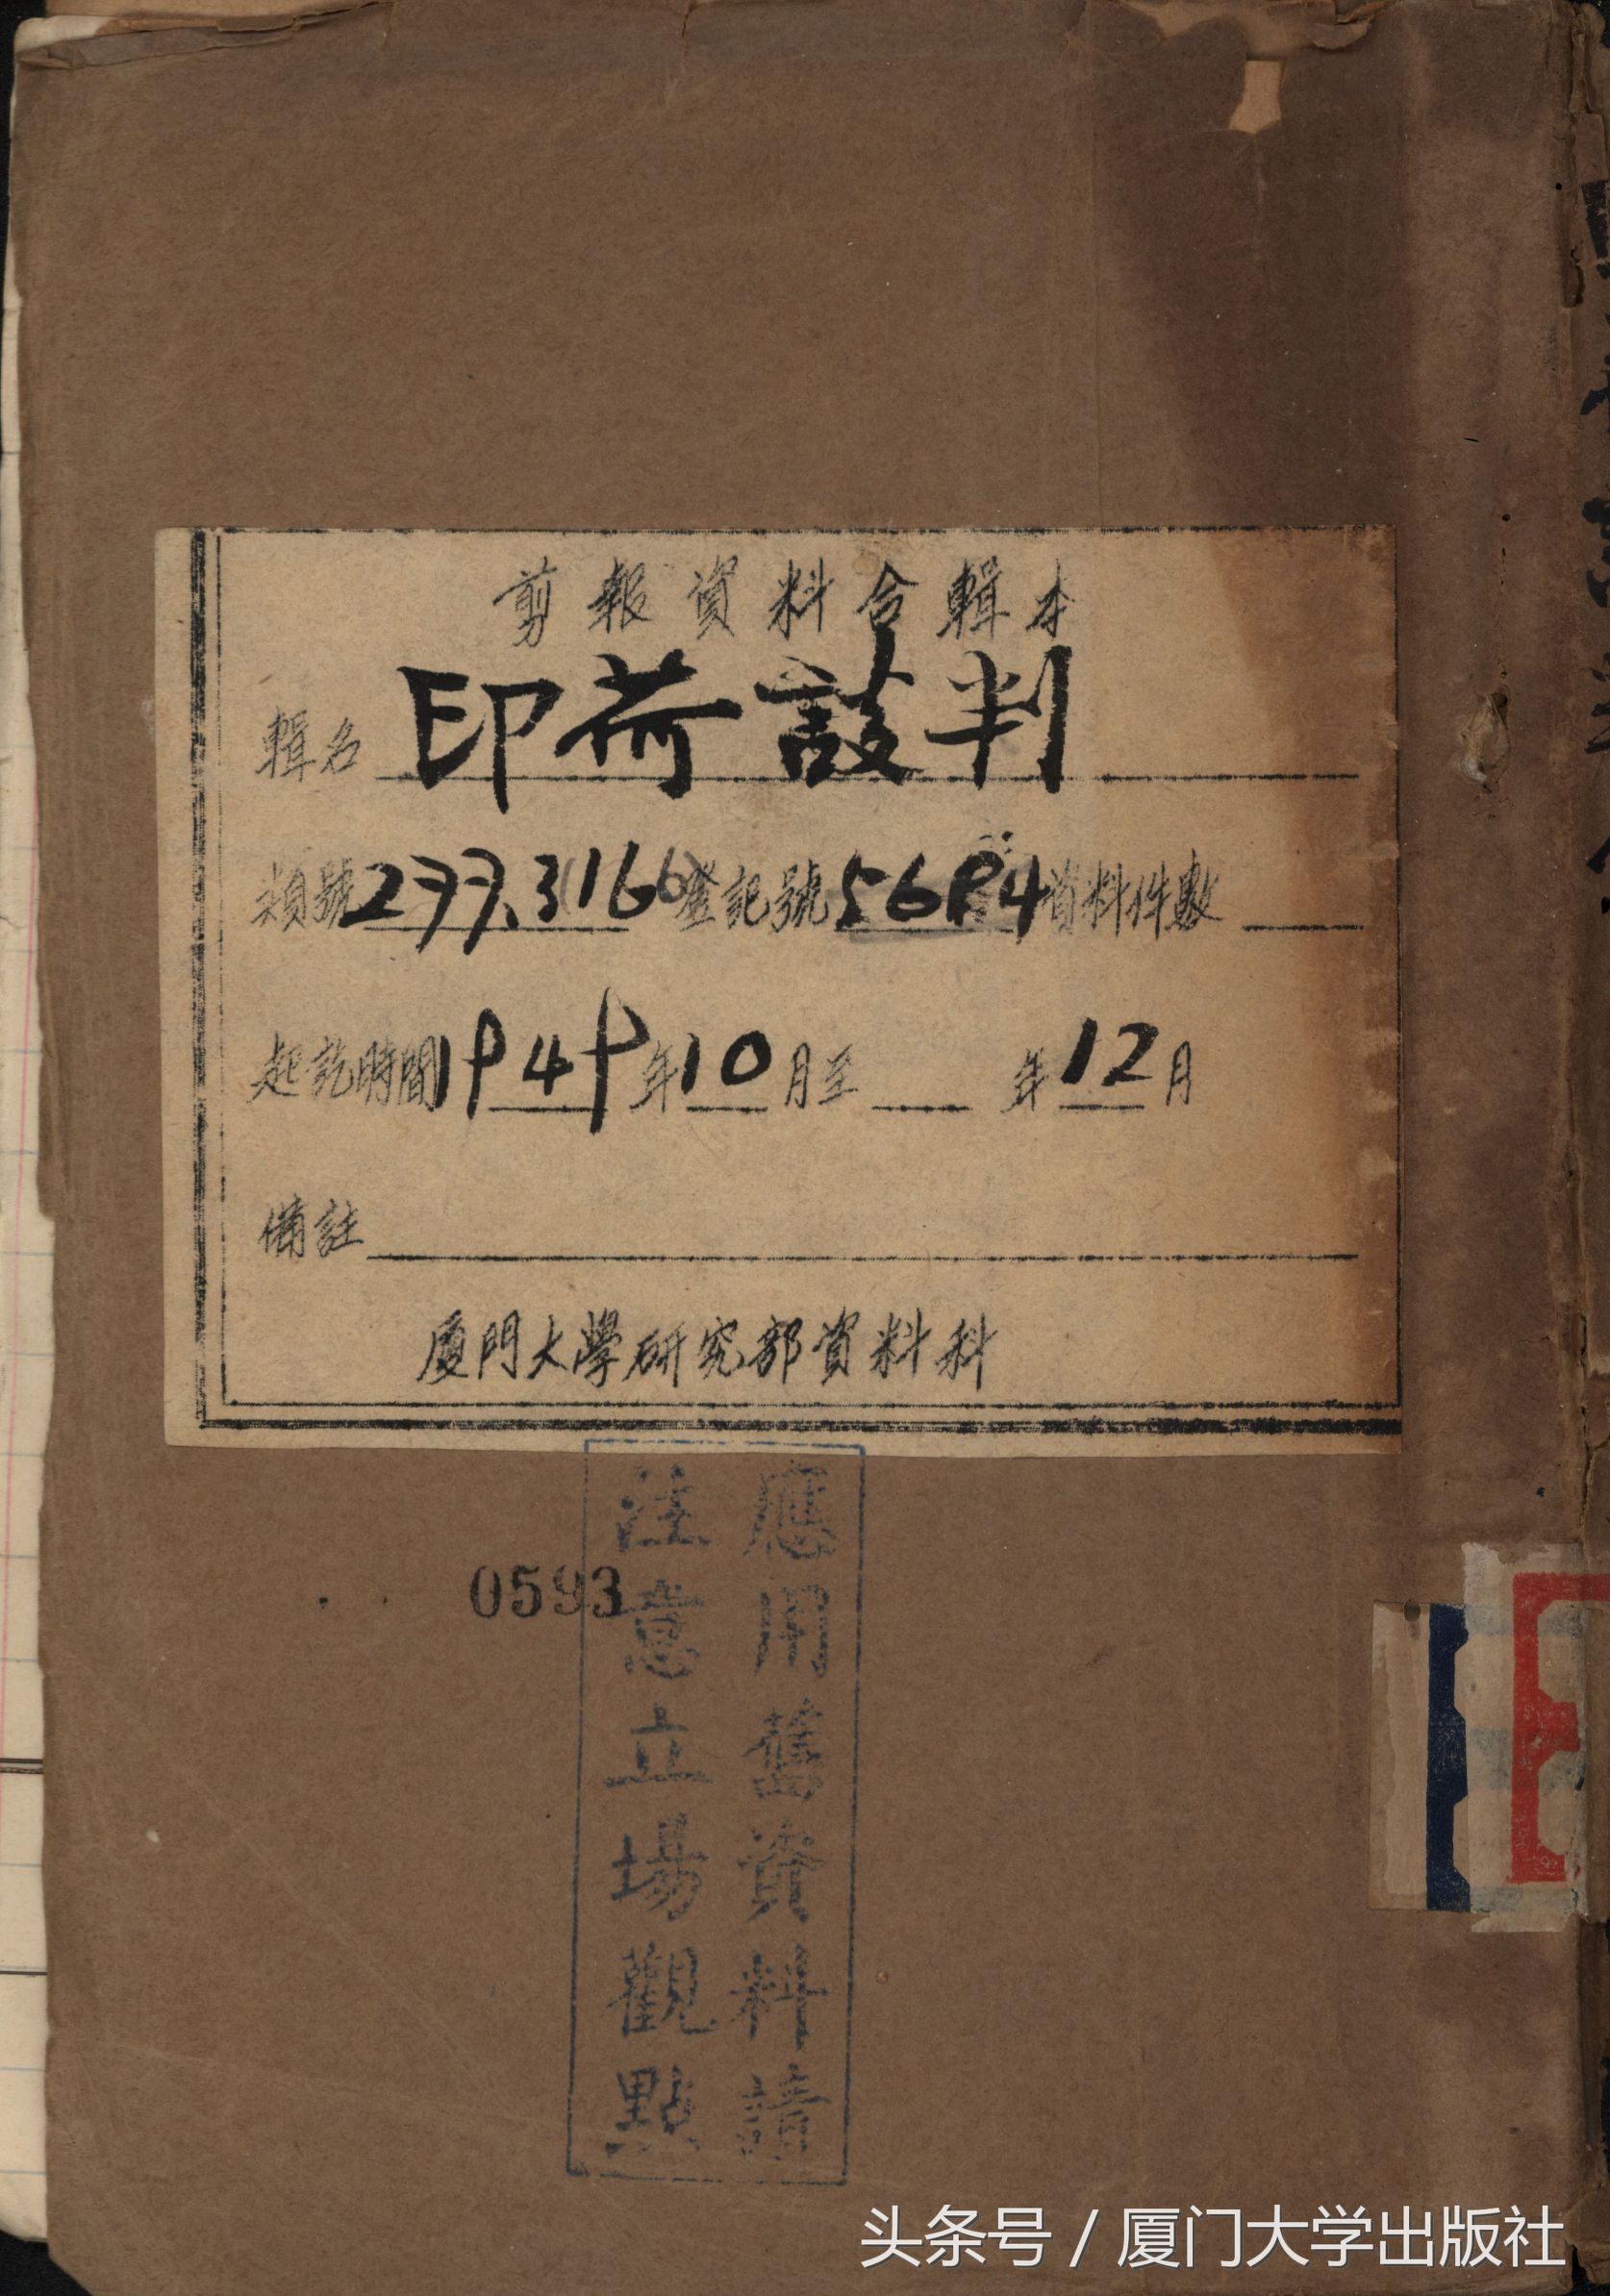 剪報資料合輯本
輯名 印荷談判
類號277.3166 登記號5684 資料件數
起訖時間1949年10月至 年12月
備註
廈門大學研究部資料科
0593
應用舊資料請
注意立場觀點
头条号 / 厦门大学出版社